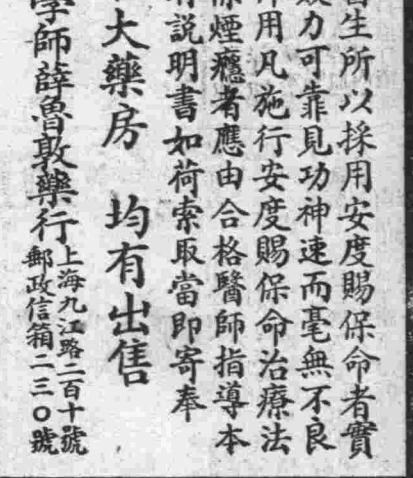 醫生所以採用安度賜保命者實
效力可靠見功神速而毫無不良
作用凡施行安度賜保命治療法
除煙癮者應由合格醫師指導本
有説明書如荷索取當即寄奉
大藥房 均有出售
學師薛魯敦藥行
上海九江路二百十號
郵政信箱二三〇號